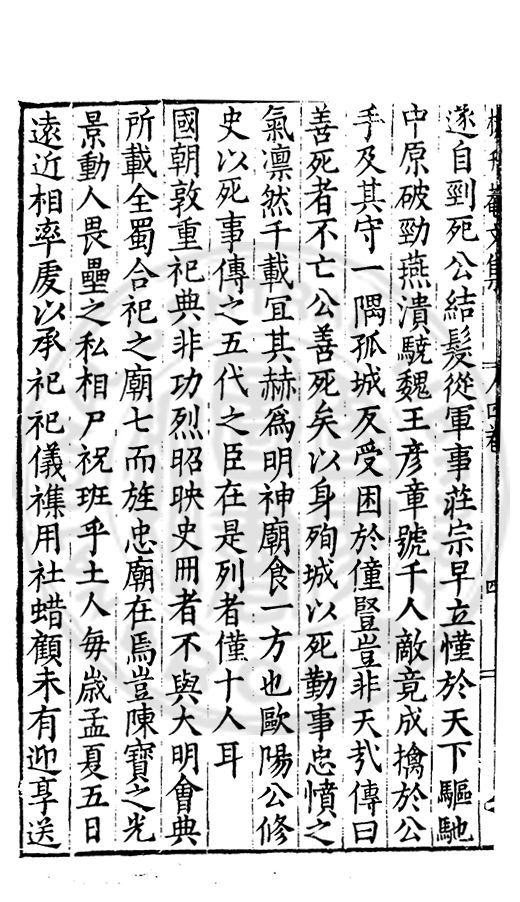 遂自剄死公結髮從軍事莊宗早立懂於天下驅馳
中原破勁燕潰驍魏王彥章號千人敵竟成擒於公
手及其守一隅孤城反受困於僮豎豈非天㢤傳曰
善死者不亡公善死矣以身殉城以死勤事忠憤之
氣凛然千載宜其赫為明神廟食一方也歐陽公修
史以死事傳之五代之臣在是列者僅十人耳
國朝敦重祀典非功烈昭映史冊者不與大明會典
所載全蜀合祀之廟七而旌忠廟在焉豈陳寶之光
景動人畏壘之私相尸祝班乎土人每歲孟夏五日
遠近相率虔以承祀祀儀襍用社蜡顧未有迎享送